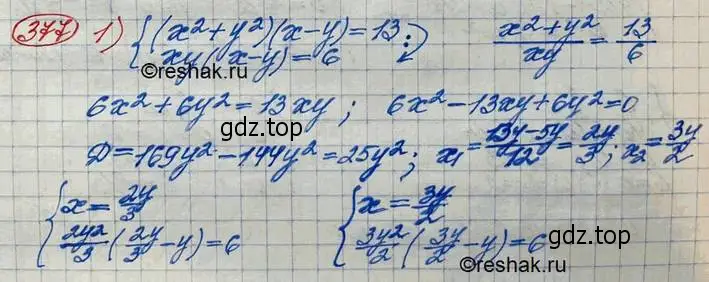 377 1) { (x²+y²)(x-y)=13 :) x²+y²/xy = 13/6
{ xy(x-y)=6
©reshak.ru
6x²+6y²=13xy; 6x²-13xy+6y²=0
gdz.top
D=169y²-144y²=25y²; x₁=13y-5y/12=2y/3; x₂=3y/2
{ x=2y/3 { x=3y/2
{ 2y²/3(2y/3-y)=6 { 3y²/2(3y/2-y)=6
gdz.top
©reshak.ru